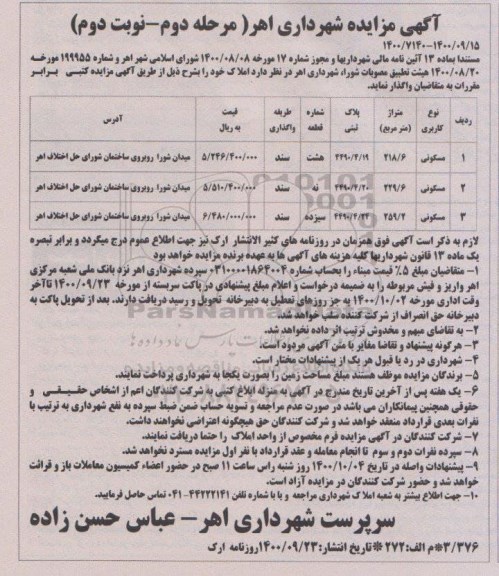 آگهی مزایده شهرداری اهر( مرحله دوم-نوبت دوم)
۱۴۰۰/۷۱۴۰-۱۴۰۰/۰۹/۱۵
مستندا بماده ۱۳ آئین نامه مالی شهرداریها و مجوز شماره ۱۷ مورخه ۱۴۰۰/۰۸/۰۸ شورای اسلامی شهر اهر و شماره ۱۹۹۹۵۵ مورخه
۱۴۰۰/۰۸/۲۰ هیئت تطبیق مصوبات شورا، شهرداری اهر در نظر دارد املاک خود را بشرح ذیل از طریق آگهی مزایده کتبی برابر
مقررات به متقاضیان واگذار نماید.
ردیف نوع کاربری متراژ (متر مربع) پلاک ثبتی شماره قطعه طریقه واگذاری قیمت به ریال آدرس
۱ مسکونی ۲۱۸/۶ ۴۴۹۰/۲/۱۹ هشت سند ۵/۲۴۶/۴۰۰/۰۰۰ میدان شورا روبروی ساختمان شورای حل اختلاف اهر
۲ مسکونی ۲۲۹/۶ ۴۴۹۰/۲/۲۰ نه سند ۵/۵۱۰/۴۰۰/۰۰۰ میدان شورا روبروی ساختمان شورای حل اختلاف اهر
۳ مسکونی ۲۵۹/۲ ۴۴۹۰/۲/۲۳ سیزده سند ۶/۴۸۰/۰۰۰/۰۰۰ میدان شورا روبروی ساختمان شورای حل اختلاف اهر
لازم به ذکر است آگهی فوق همزمان در روزنامه های کثیر الانتشار ارک نیز جهت اطلاع عموم درج میگردد و برابر تبصره
یک ماده ۱۳ قانون شهرداریها کلیه هزینه های آگهی ها به عهده برنده مزایده خواهد بود
۱- متقاضیان مبلغ ۵٪ قیمت مبناء را بحساب شماره ۰۳۱۰۰۰۰۱۸۶۴۰۰۴ سپرده شهرداری اهر نزد بانک ملی شعبه مرکزی
اهر واریز و فیش مربوطه را به ضمیمه درخواست و اعلام مبلغ پیشنهادی در پاکت سربسته از مورخه ۱۴۰۰/۰۹/۲۳ تاآخر
وقت اداری مورخه ۱۴۰۰/۱۰/۰۲ به جز روزهای تعطیل به دبیرخانه تحویل و رسید دریافت دارند. بعد از تحویل پاکت به
دبیرخانه حق انصراف از شرکت کننده سلب خواهد شد.
۲- به تقاضای مبهم و مخدوش ترتیب اثر داده نخواهد شد.
۳- هرگونه پیشنهاد و تقاضا مغایر با متن آگهی مردود است.
۴- شهرداری در رد یا قبول هر یک از پیشنهادات مختار است.
۵- برندگان مزایده موظف هستند مبلغ مساحت زمین را بصورت یکجا به شهرداری پرداخت نمایند.
۶- یک هفته پس از آخرین تاریخ مندرج در آگهی به منزله ابلاغ کتبی به شرکت کنندگان اعم از اشخاص حقیقی و
حقوقی همچنین پیمانکاران می باشد در صورت عدم مراجعه و تسویه حساب ضمن ضبط سپرده به نفع شهرداری به ترتیب با
نفرات بعدی قرارداد منعقد خواهد شد و شرکت کنندگان حق هیچگونه اعتراضی نخواهند داشت.
۷- شرکت کنندگان در آگهی مزایده فرم مخصوص از واحد املاک را حتما دریافت نمایند.
۸- سپرده نفرات دوم و سوم تا انجام معامله و عقد قرارداد با نفر اول مزایده مسترد نخواهد شد.
۹- پیشنهادات واصله در تاریخ ۱۴۰۰/۱۰/۰۴ روز شنبه راس ساعت ۱۱ صبح در حضور اعضاء کمیسیون معاملات باز و قرائت
خواهد شد و حضور شرکت کنندگان در مزایده آزاد است.
۱۰- جهت اطلاع بیشتر به شعبه املاک شهرداری مراجعه و یا با شماره تلفن ۴۴۲۲۲۱۴۱-۰۴۱ تماس حاصل فرمایید.
سرپرست شهرداری اهر- عباس حسن زاده
۳/۳۷۶*م الف:۲۷۲*تاریخ انتشار:۱۴۰۰/۰۹/۲۳روزنامه ارک